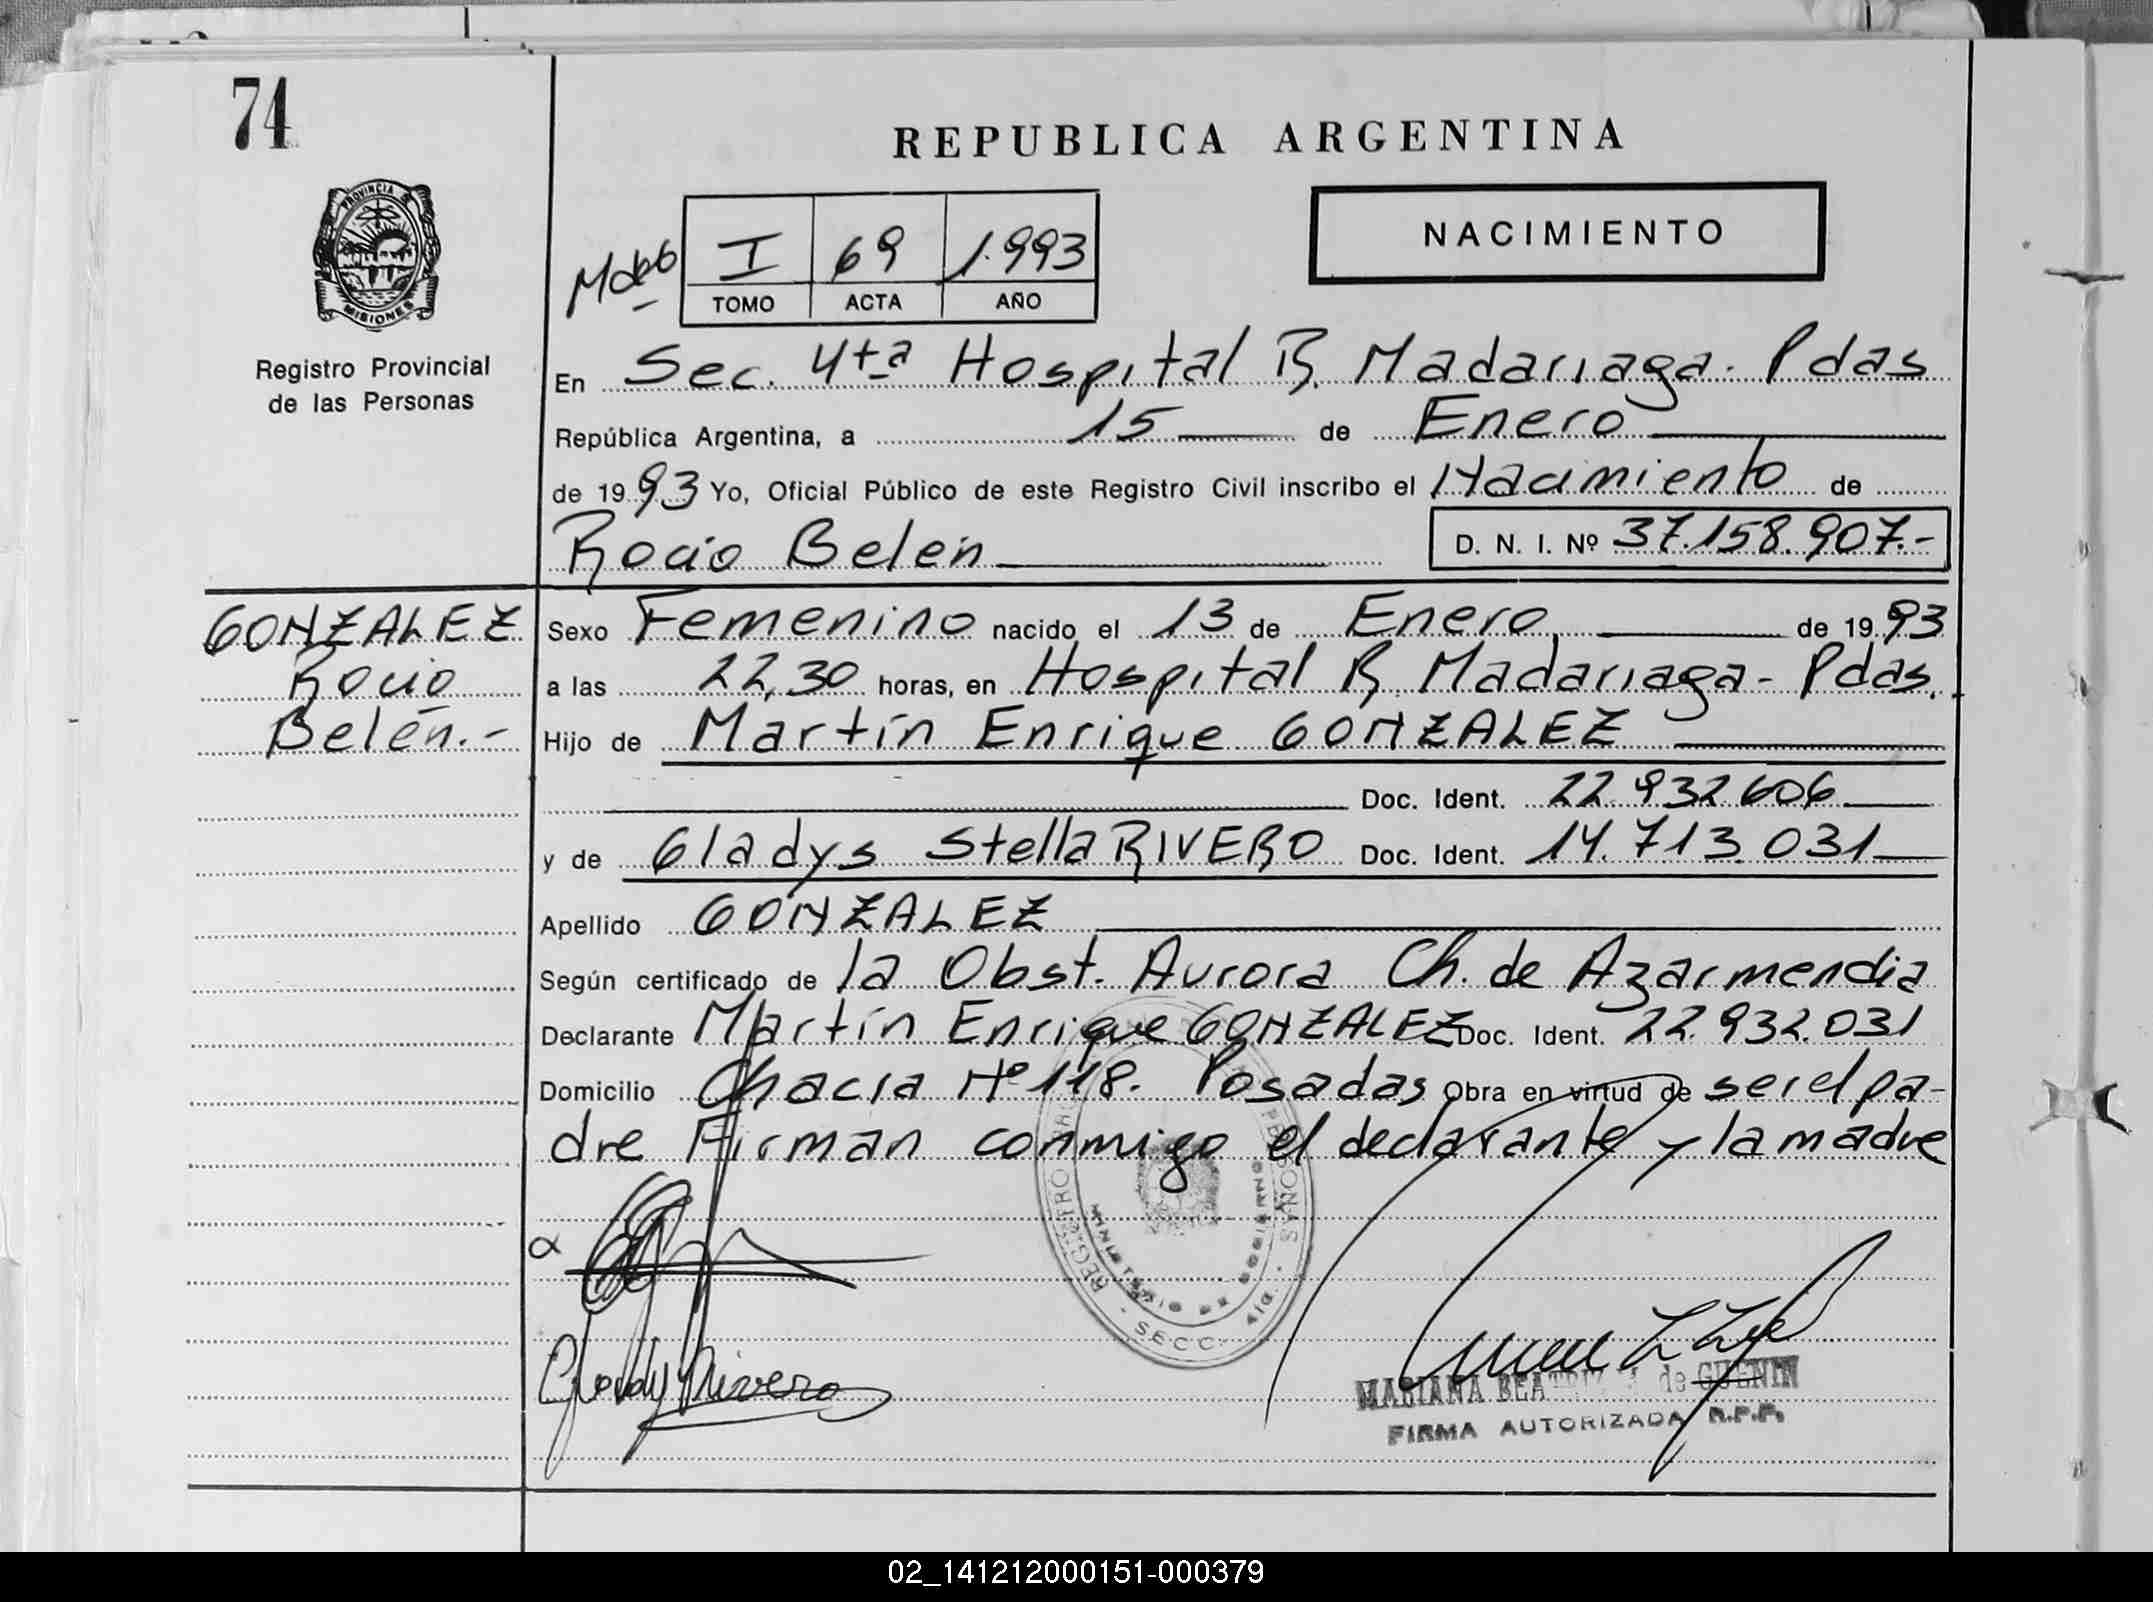 74
REPUBLICA ARGENTINA
PROVINCIA DE MISIONES
NACIMIENTO
I 69 1.993
TOMO ACTA AÑO
Registro Provincial
de las Personas
En Sec. 4ta Hospital R. Madariaga. Pdas
República Argentina, a 15 de Enero
de 1993 Yo, Oficial Público de este Registro Civil inscribo el Nacimiento de
Rocio Belén D. N. I. Nº 37.158.907.-
GONZALEZ
Rocio
Belén.-
Sexo Femenino nacido el 13 de Enero de 1993
a las 22,30 horas, en Hospital R. Madariaga - Pdas.
Hijo de Martín Enrique GONZALEZ
Doc. Ident. 22.932.606
y de Gladys Stella RIVERO Doc. Ident. 14.713.031
Apellido GONZALEZ
Según certificado de la Obst. Aurora Ch. de Azarmendia
Declarante Martín Enrique GONZALEZ Doc. Ident. 22.932.031
Domicilio Chacra Nº 118. Posadas Obra en virtud de ser el pa-
dre Firman conmigo el declarante y la madre
REGISTRO PERSONAS
MINISTERIO DE GOBIERNO
SECC. 4ta.
Gladys Rivero
MARIANA BEATRIZ de GUENIN
FIRMA AUTORIZADA R.P.P.
02_141212000151-000379